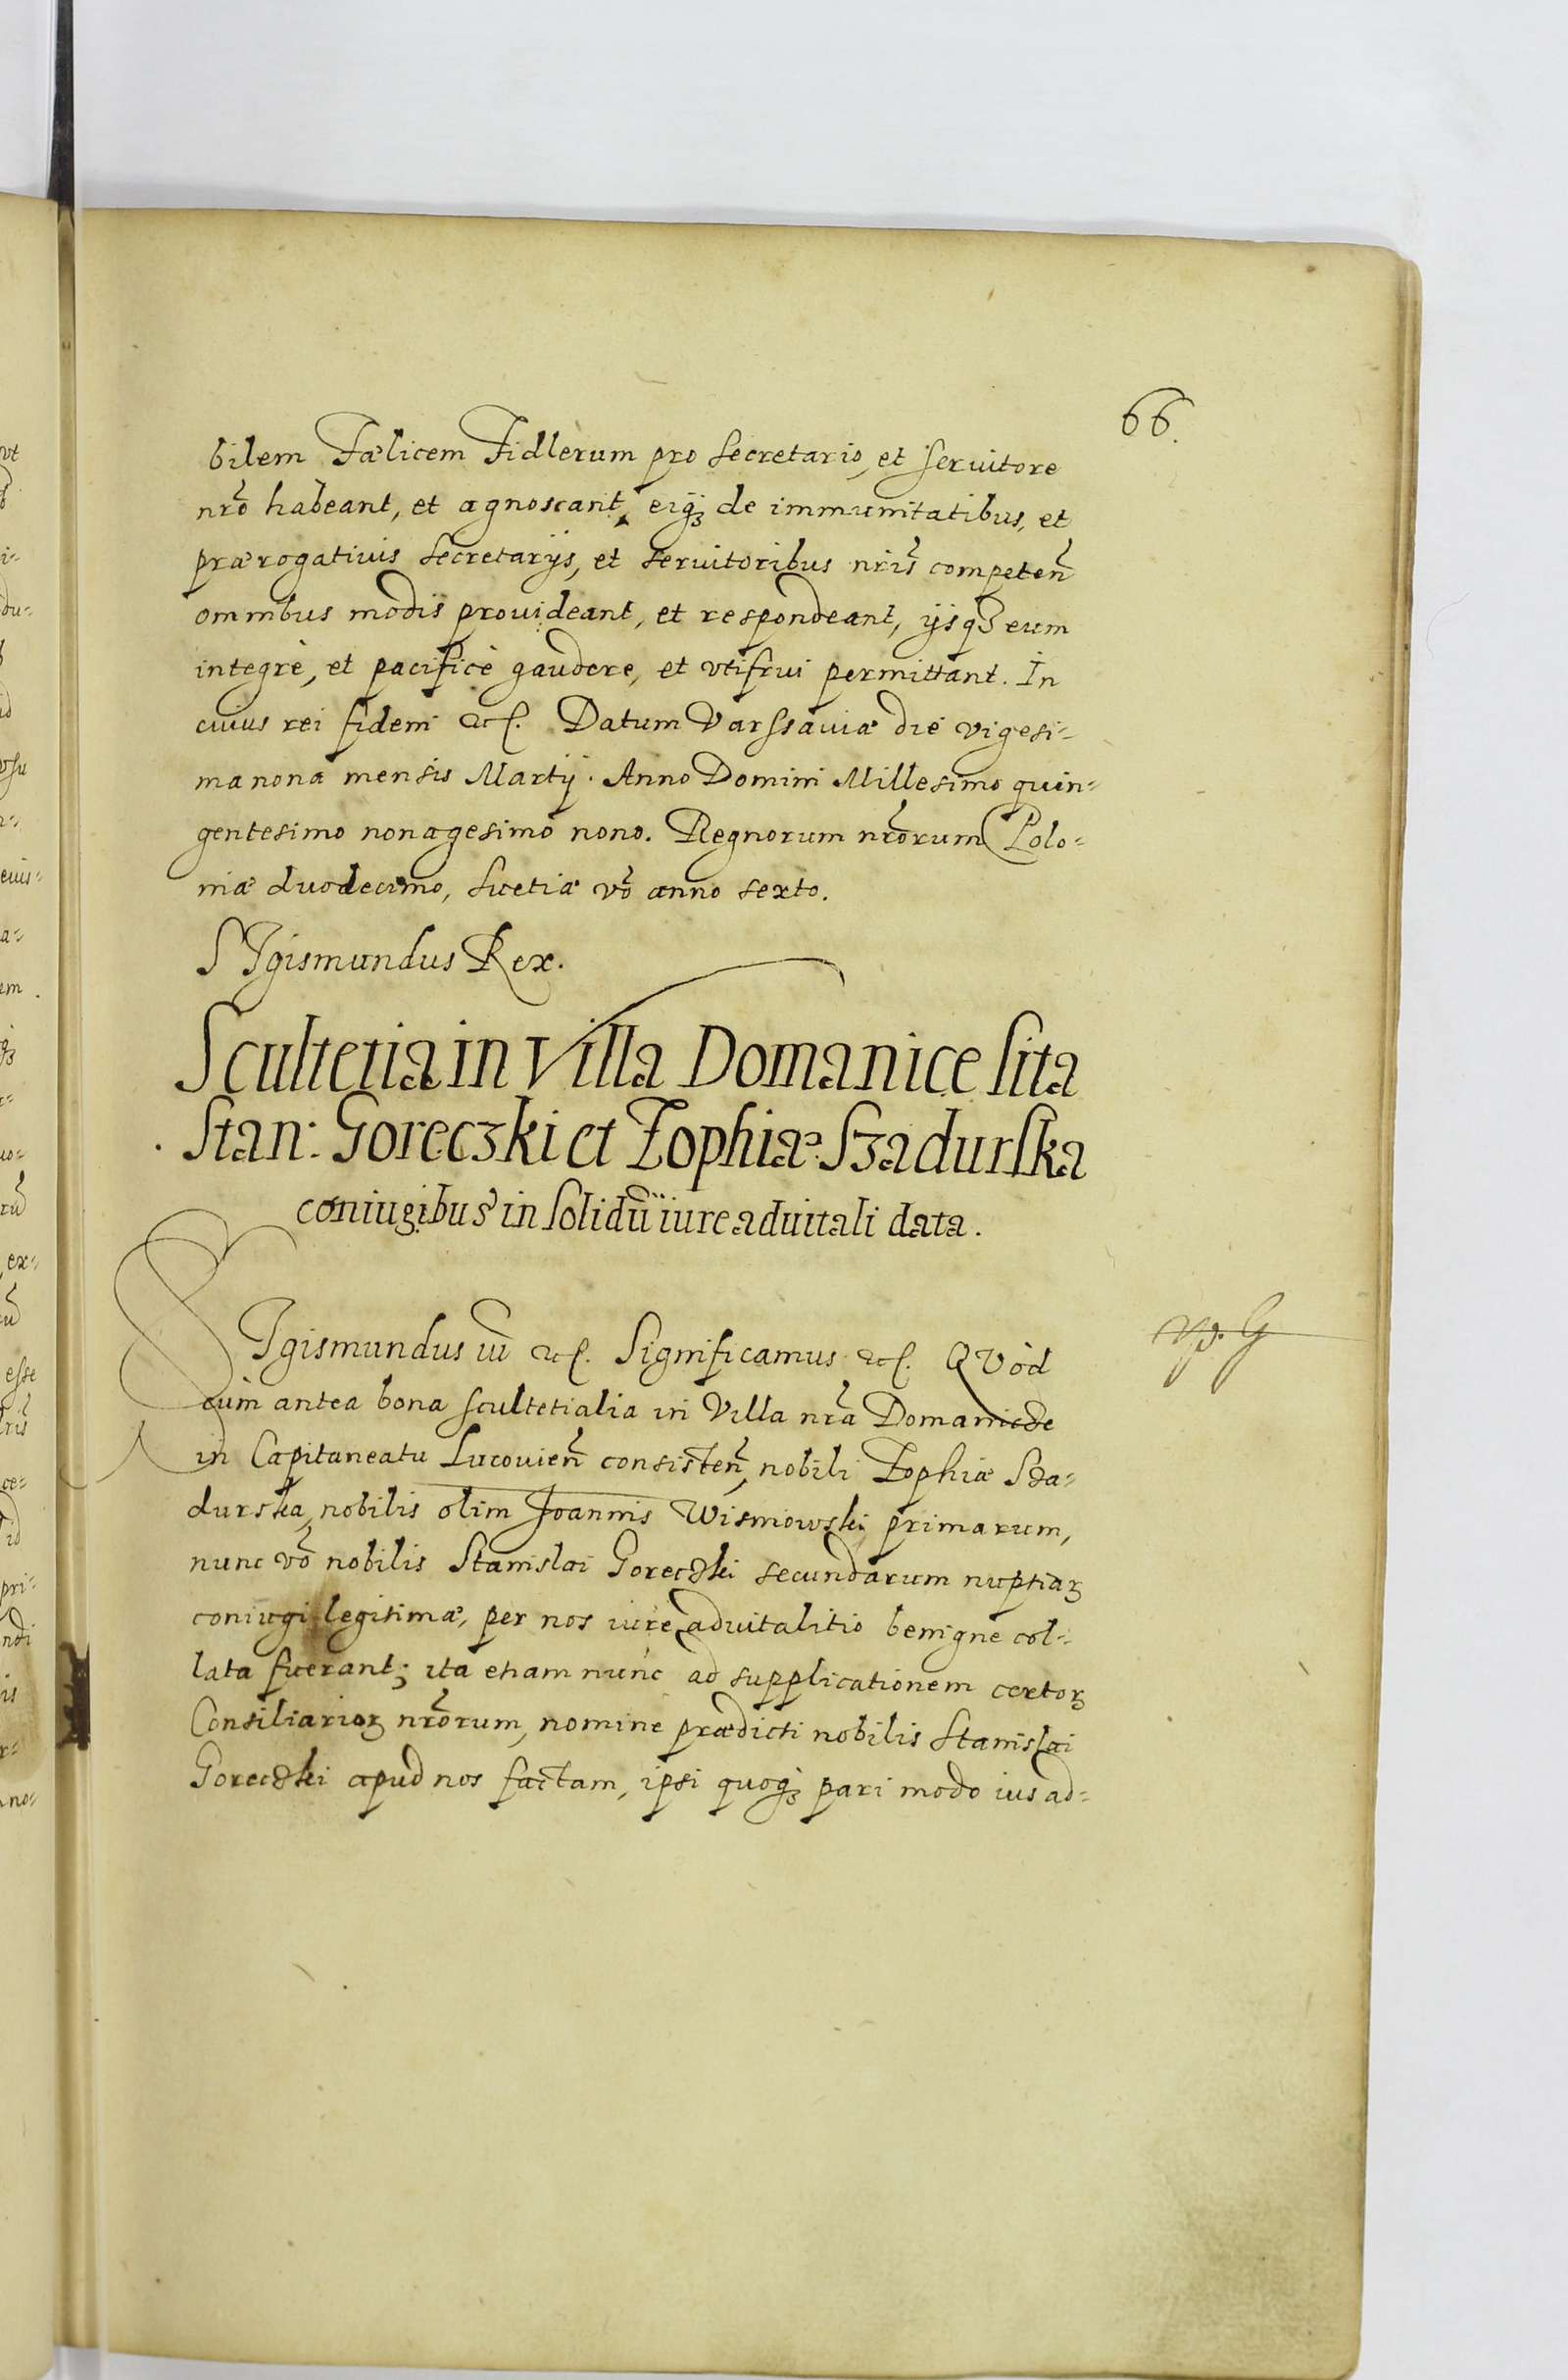 66.
bilem Fælicem Fidlerum pro secretario, et seruitore
nrõ habeant, et agnoscant, eiq₃ de immunitatibus, et
prærogatiuis secretarijs, et seruitoribus nrĩs competeñ
omnibus modis prouideant, et respondeant, ijsq₃ eum
integrè, et pacificè gaudere, et vtifrui permittant. In
cuius rei fidem etc. Datum Varssauiæ die vigesi-
ma nona mensis Martij. Anno Domini Millesimo quin-
gentesimo nonagesimo nono. Regnorum nrõrum Polo-
niæ duodecimo, Suetiæ võ anno sexto.
SIgismundus Rex.
Scultetia in Villa Domanice sita
Stan: Goreczki et Zophiæ Szadurska
coniugibus in solidũ iure aduitali data.
SIgismundus iii etc. Significamus etc. QVòd
cùm antea bona scultetialia in Villa nrã Domanicze
in Capitaneatu Lucouieñ consisteñ, nobili Zophiæ Sza-
durska, nobilis olim Joannis Wisniowski primarum,
nunc võ nobilis Stanislai Goreczki secundarum nuptiaꝝ
coniugi legitimæ, per nos iure aduitalitio benigne col-
lata fuerant; ita etiam nunc ad supplicationem certoꝝ
Consiliarioꝝ nrõrum, nomine prædicti nobilis Stanislai
Goreczki apud nos factam, ipsi quoq₃ pari modo ius ad-